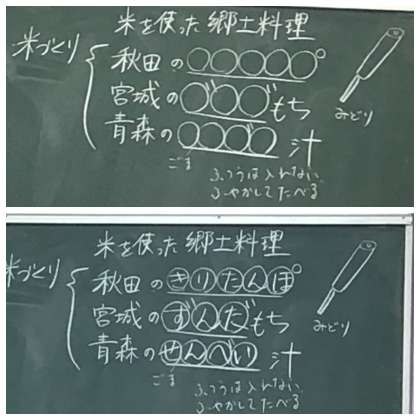 米を使った郷土料理
米づくり
秋田の○○○○○゜
宮城の○゛○○゛もち
青森の○○○゛○汁
ごま
ふつうは入れない
ふやかしてたべる
みどり
米を使った郷土料理
米づくり
秋田のきりたんぽ
宮城のずんだもち
青森のせんべい汁
ごま
ふつうは入れない
ふやかしてたべる
みどり